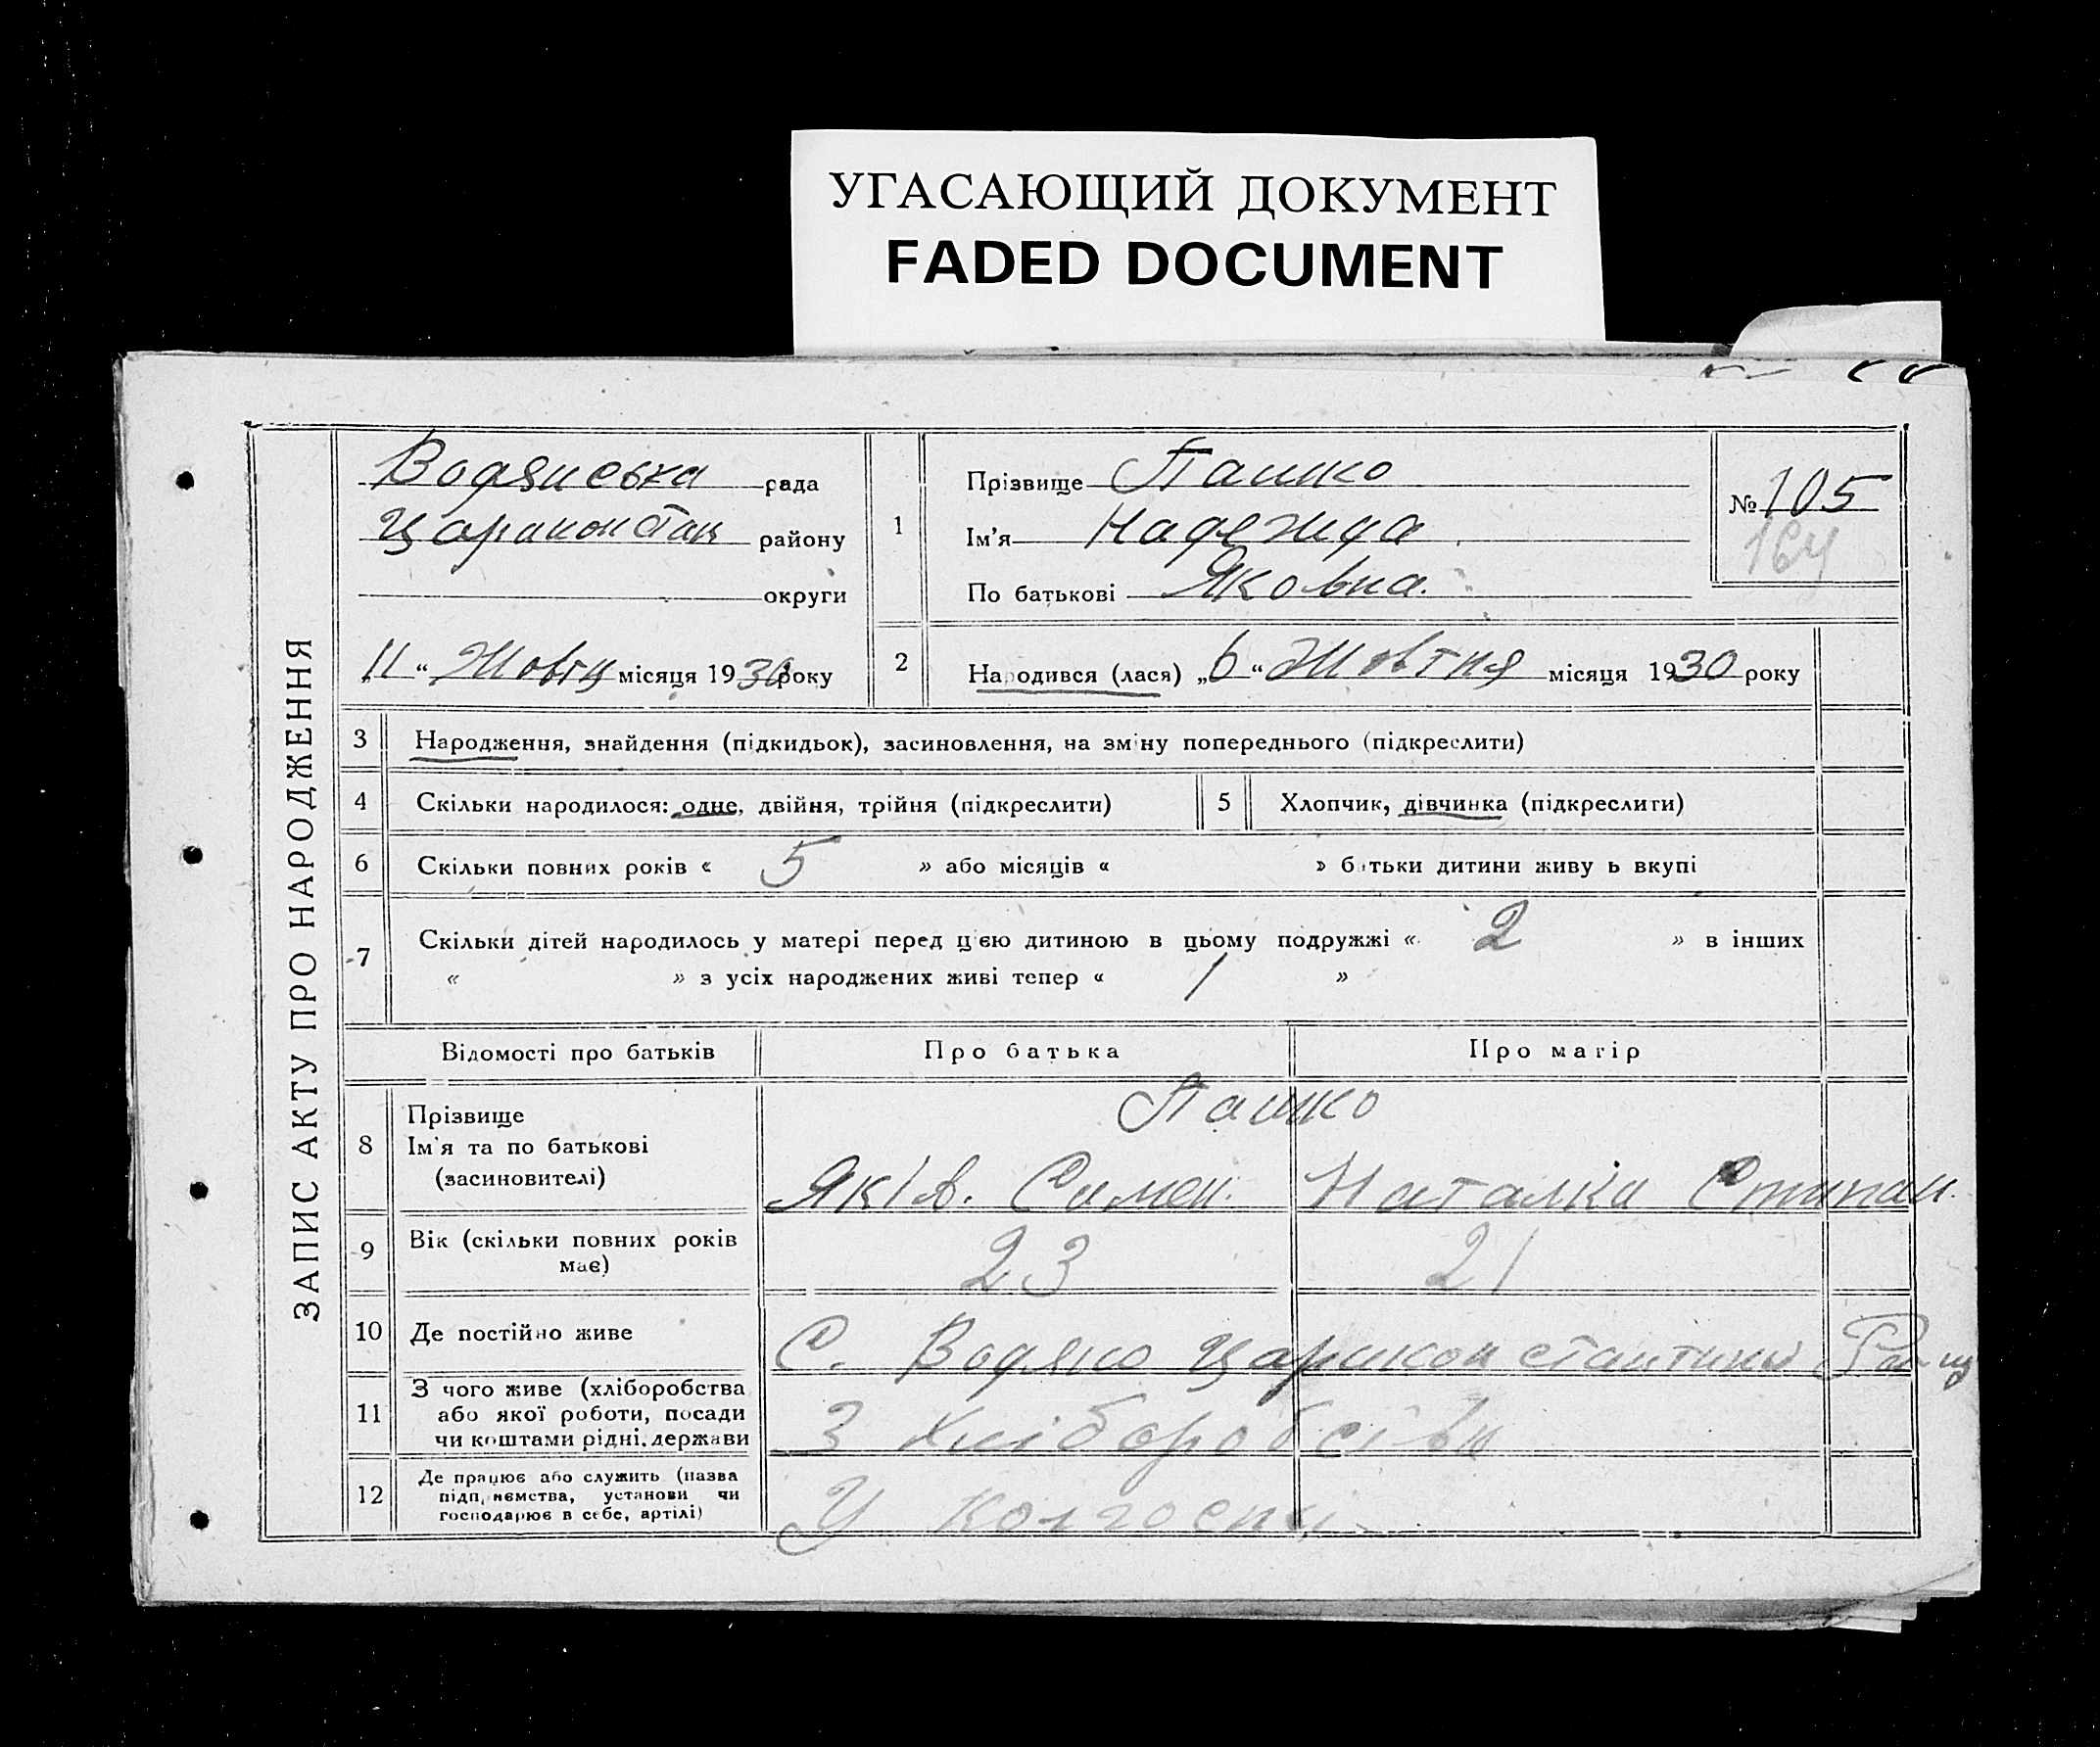 УГАСАЮЩИЙ ДОКУМЕНТ
FADED DOCUMENT
ЗАПИС АКТУ ПРО НАРОДЖЕННЯ
Водянська рада
Цариконстан району
округи
„11“ Жовтн місяця 1930 року
1
Прізвище Пашко
Ім'я Надежда
По батькові Яковна.
№ 105
164
2
Народився (лася) „6“ Жовтня місяця 1930 року
3 Народження, знайдення (підкидьок), засиновлення, на зміну попереднього (підкреслити)
4 Скільки народилося: одне, двійня, трійня (підкреслити)
5 Хлопчик, дівчинка (підкреслити)
6 Скільки повних років « 5 » або місяців « » батьки дитини живуть вкупі
7 Скільки дітей народилось у матері перед цією дитиною в цьому подружжі « 2 » в інших
« » з усіх народжених живі тепер « 1 »
Відомості про батьків Про батька Про матір
8 Прізвище
Ім'я та по батькові
(засиновителі)
Пашко
Яків. Симен. Наталка Стипан.
9 Вік (скільки повних років
має)
23 21
10 Де постійно живе
С. Водяно Цариконстантинов
11 З чого живе (хліборобства
або якої роботи, посади
чи коштами рідні, держави
З хліборобства
12 Де працює або служить (назва
підприємства, установи чи
господарює в себе, артілі)
У колгоспі